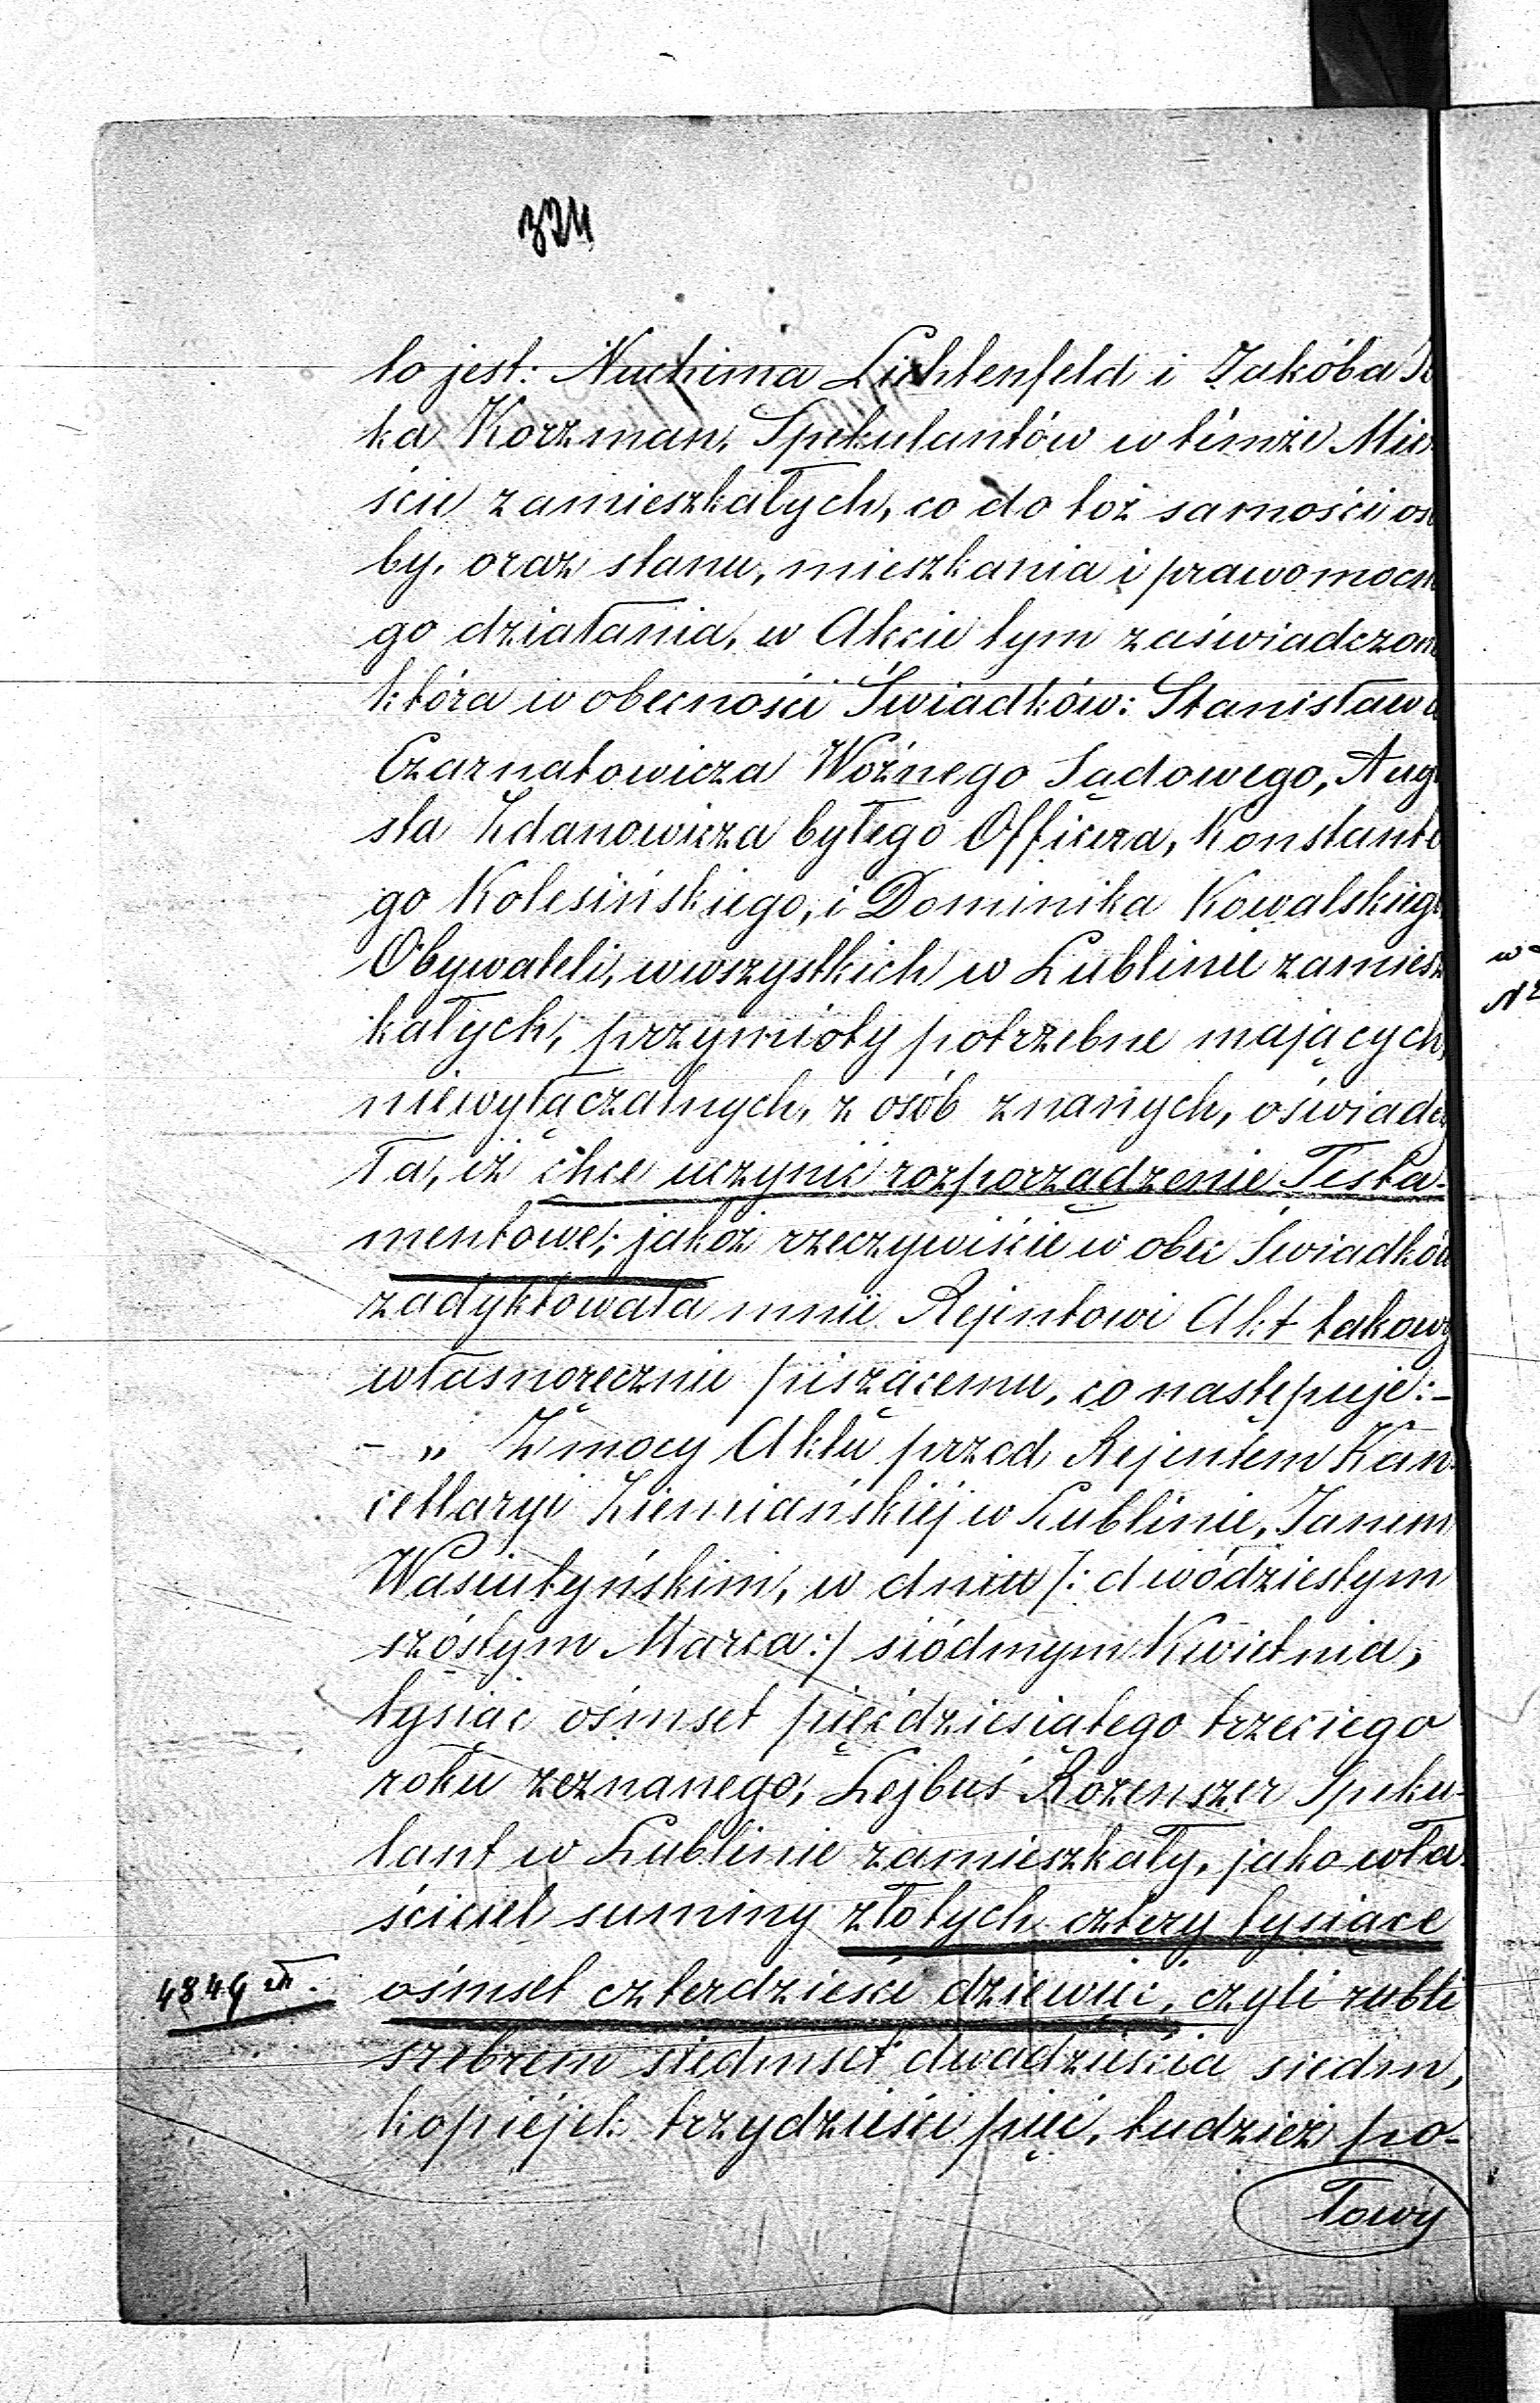 324
to jest: Nuchima Lichtenfeld i Jakóba
ka Korzman, Spekulantów w témże Mie-
ście zamieszkałych, co do toż samości oso
by, oraz stanu, mieszkania i prawomocne
go działania, w Akcie tym zaświadczone
która w obecności Świadków: Stanisława
Czarnatowicza Woźnego Sądowego, Augu
sta Zdanowicza byłego Officera, Konstante
go Kolesińskiego, i Dominika Kowalskiego
Obywateli, wwszystkich w Lublinie zamiesz
kałych, przymioty potrzebne mających,
niewyłączalnych, z osób znanych, oświadczy
ła, iż chce uczynić rozporządzenie Testa-
mentowe; jakoż rzeczywiście w obec Świadków
zadyktowała mnie Rejentowi Akt takowy
własnoręcznie piszącemu, co następuje: –
– „ Z mocy Aktu przed Rejentem Kan-
cellaryi Ziemiańskiéj w Lublinie, Janem
Wasiutyńskim, w dniu /: dwódziestym
szóstym Marca :/ siódmym Kwietnia,
tysiąc ośmset pięćdziesiątego trzeciego
roku zeznanego, Lejbuś Rozenszer Speku-
lant w Lublinie zamieszkały, jako wła-
ściciel summy złotych cztery tysiące
4849 zł.
ośmset czterdzieści dziewięć, czyli rubli
srebrem siedmset dwadzieścia siedm,
kopiéjek trzydzieści pięć, tudzież po-
łowy